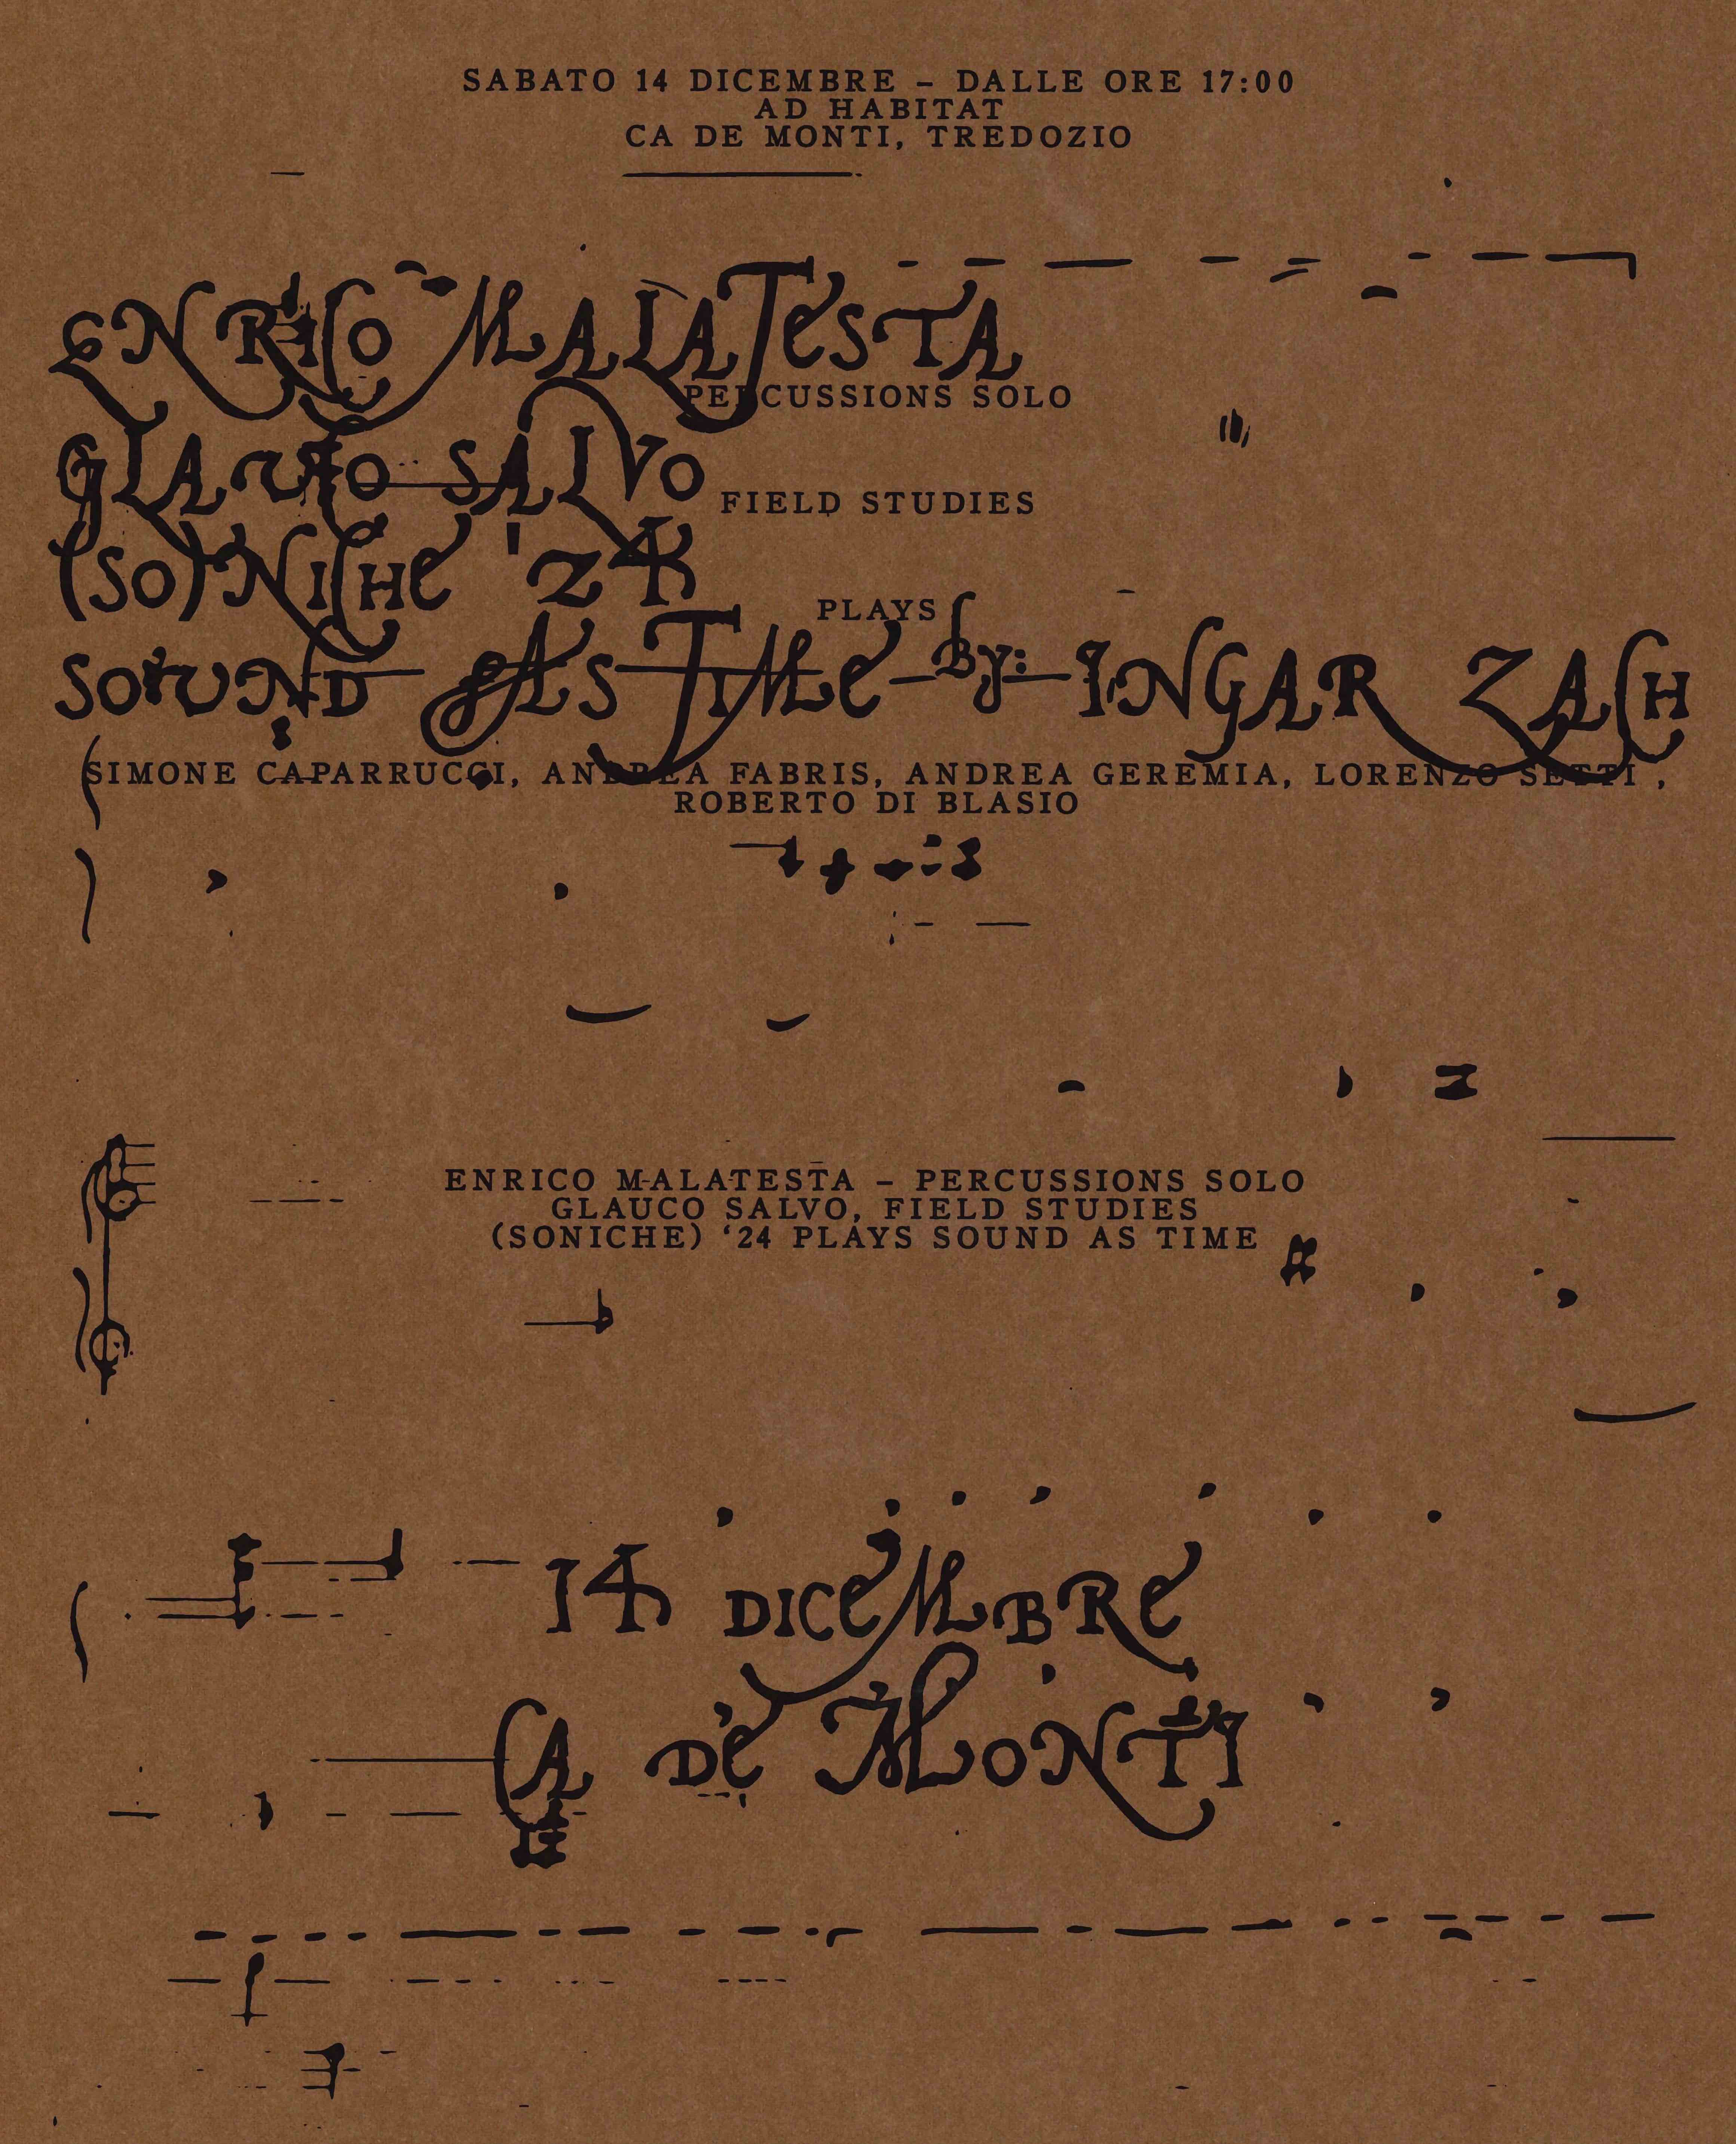 SABATO 14 DICEMBRE – DALLE ORE 17:00
AD HABITAT
CA DE MONTI, TREDOZIO
ENRICO MALATESTA
PERCUSSIONS SOLO
GLAUCO SALVO
FIELD STUDIES
(SO)NICHE '24
PLAYS
SOUND AS TIME BY: INGAR ZACH
SIMONE CAPARRUCCI, ANDREA FABRIS, ANDREA GEREMIA, LORENZO SETTI ,
ROBERTO DI BLASIO
ENRICO MALATESTA – PERCUSSIONS SOLO
GLAUCO SALVO, FIELD STUDIES
(SONICHE) ‘24 PLAYS SOUND AS TIME
14 DICEMBRE
CA DE MONTI